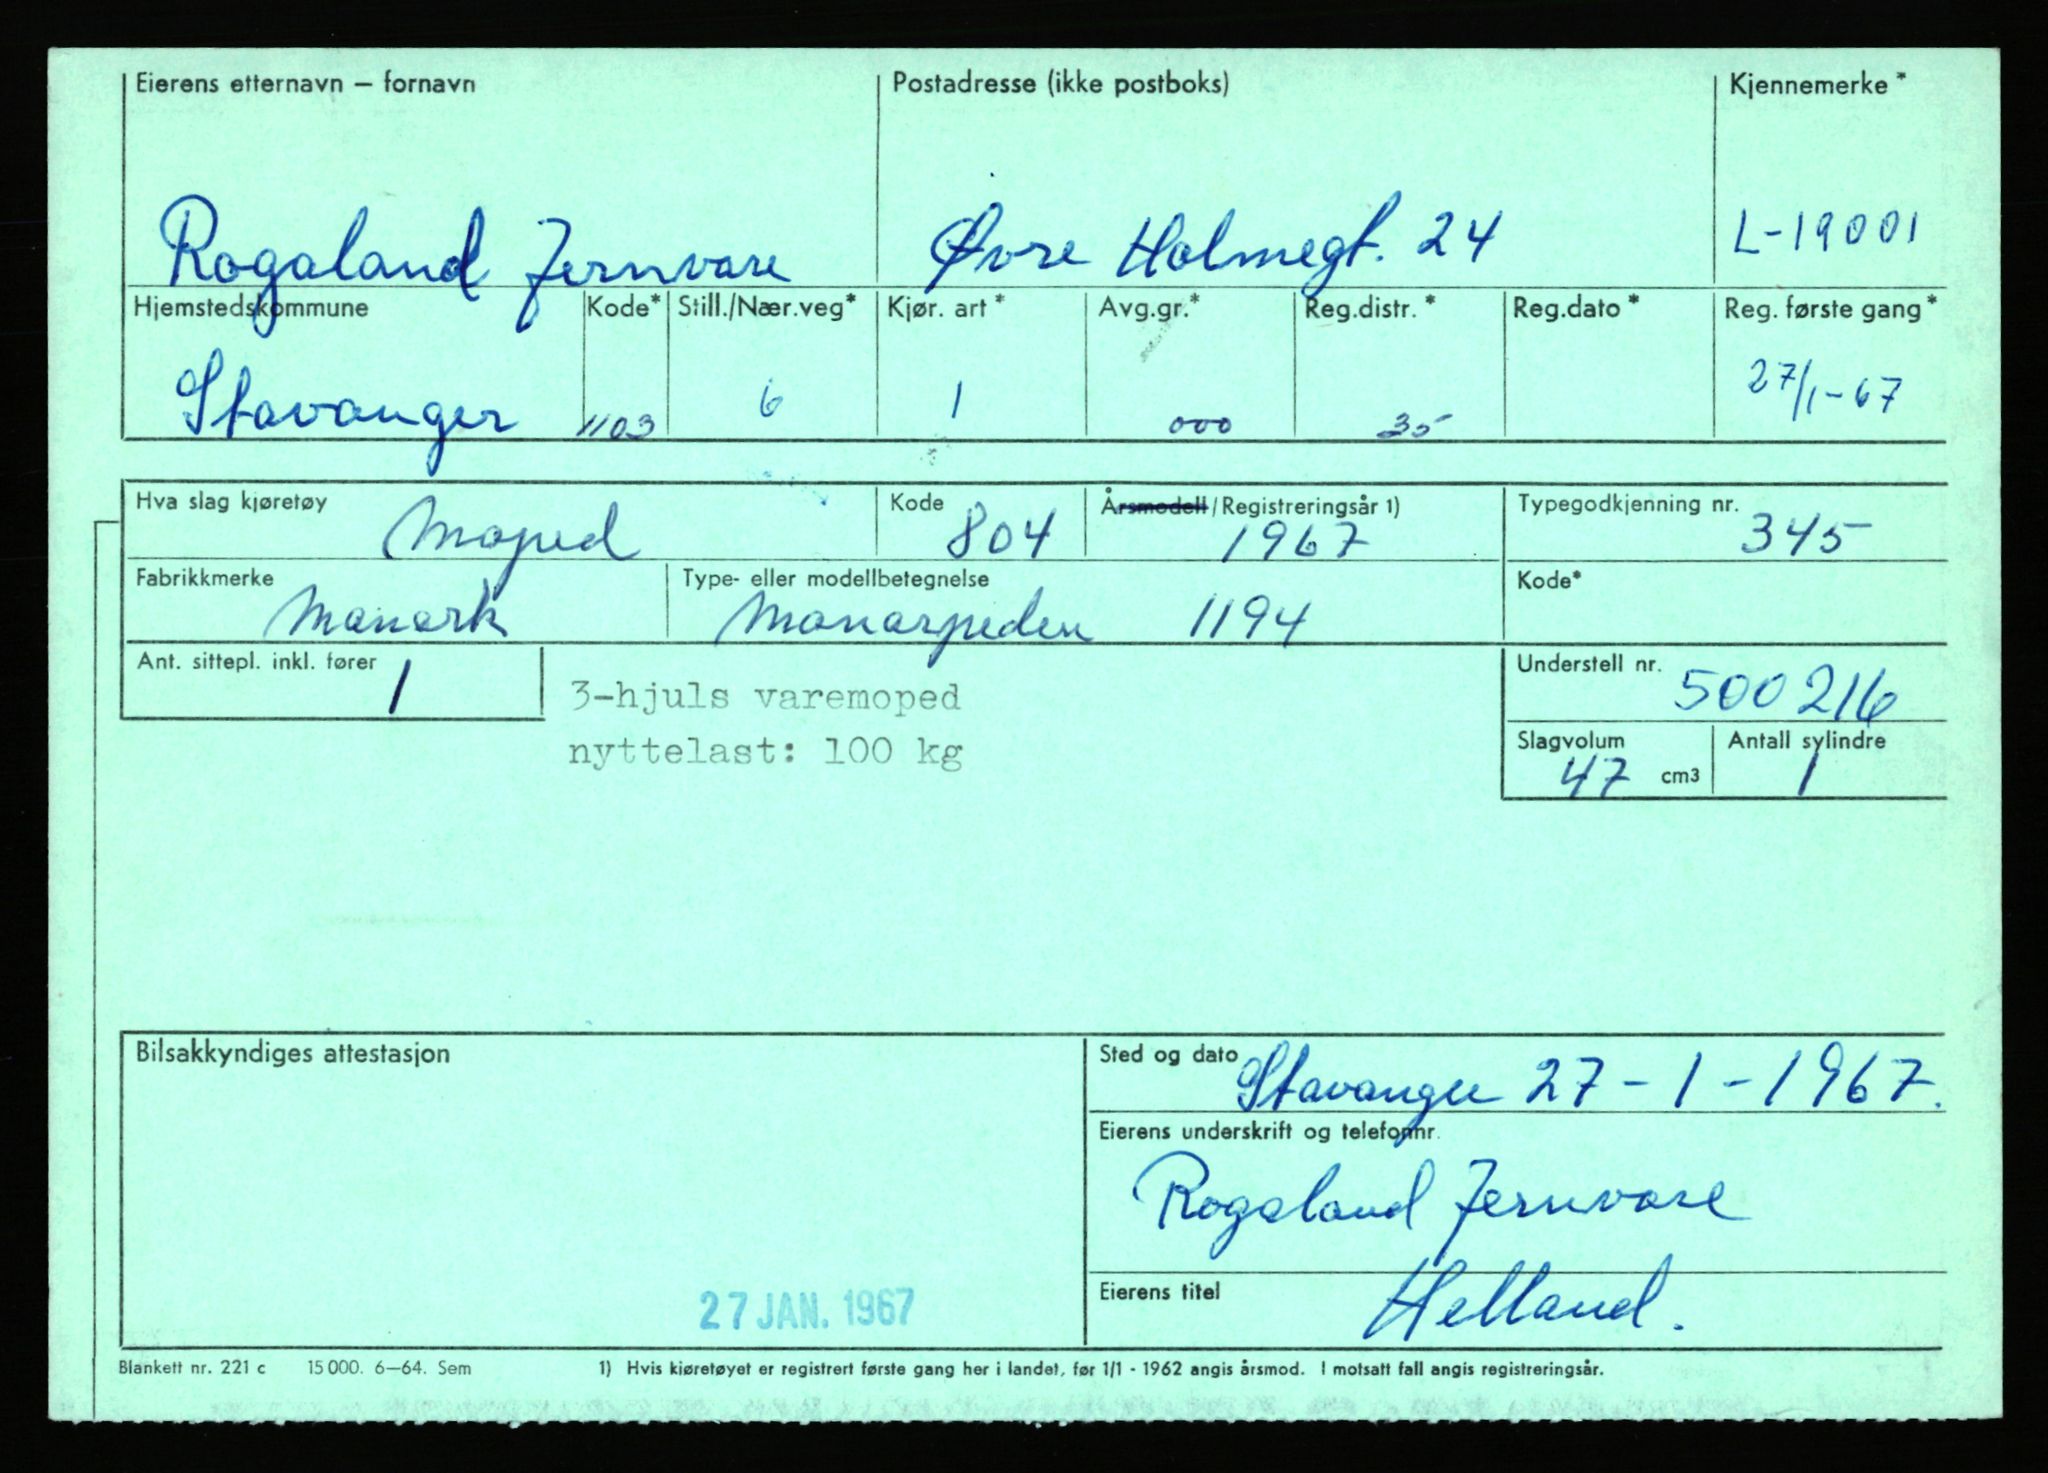 Eierens etternavn – fornavn Postadresse (ikke postboks) Kjennemerke*
Rogaland Jernvare Øvre Holmegt. 24 L-19001
Hjemstedskommune Kode* Still./Nær.veg* Kjør. art* Avg.gr.* Reg.distr.* Reg.dato* Reg. første gang*
Stavanger 1103 6 1 000 35 27/1-67
Hva slag kjøretøy Kode Årsmodell/Registreringsår 1) Typegodkjenning nr.
Moped 804 1967 345
Fabrikkmerke Type- eller modellbetegnelse Kode*
Monark Monarpeden 1194
Ant. sittepl. inkl. fører 1 Understell nr. 500216
3-hjuls varemoped
nyttelast: 100 kg
Slagvolum Antall sylindre
47 cm3 1
Bilsakkyndiges attestasjon Sted og dato
Stavanger 27-1-1967.
Eierens underskrift og telefonnr.
Rogaland Jernvare
Eierens titel
Helland.
27 JAN. 1967
Blankett nr. 221 c 15 000. 6–64. Sem 1) Hvis kjøretøyet er registrert første gang her i landet, før 1/1 - 1962 angis årsmod. I motsatt fall angis registreringsår.